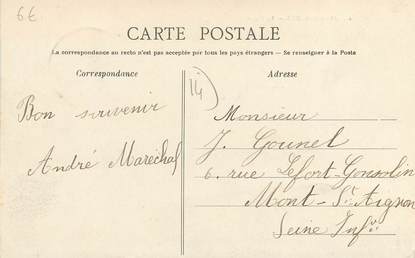 6€
CARTE POSTALE
La correspondance au recto n'est pas acceptée par tous les pays étrangers — Se renseigner à la Poste
Correspondance
Adresse
14
Bon souvenir
André Maréchal
Monsieur
J. Gounel
6. rue Lefort-Gonsolin
Mont-St-Aignan
Seine Infre